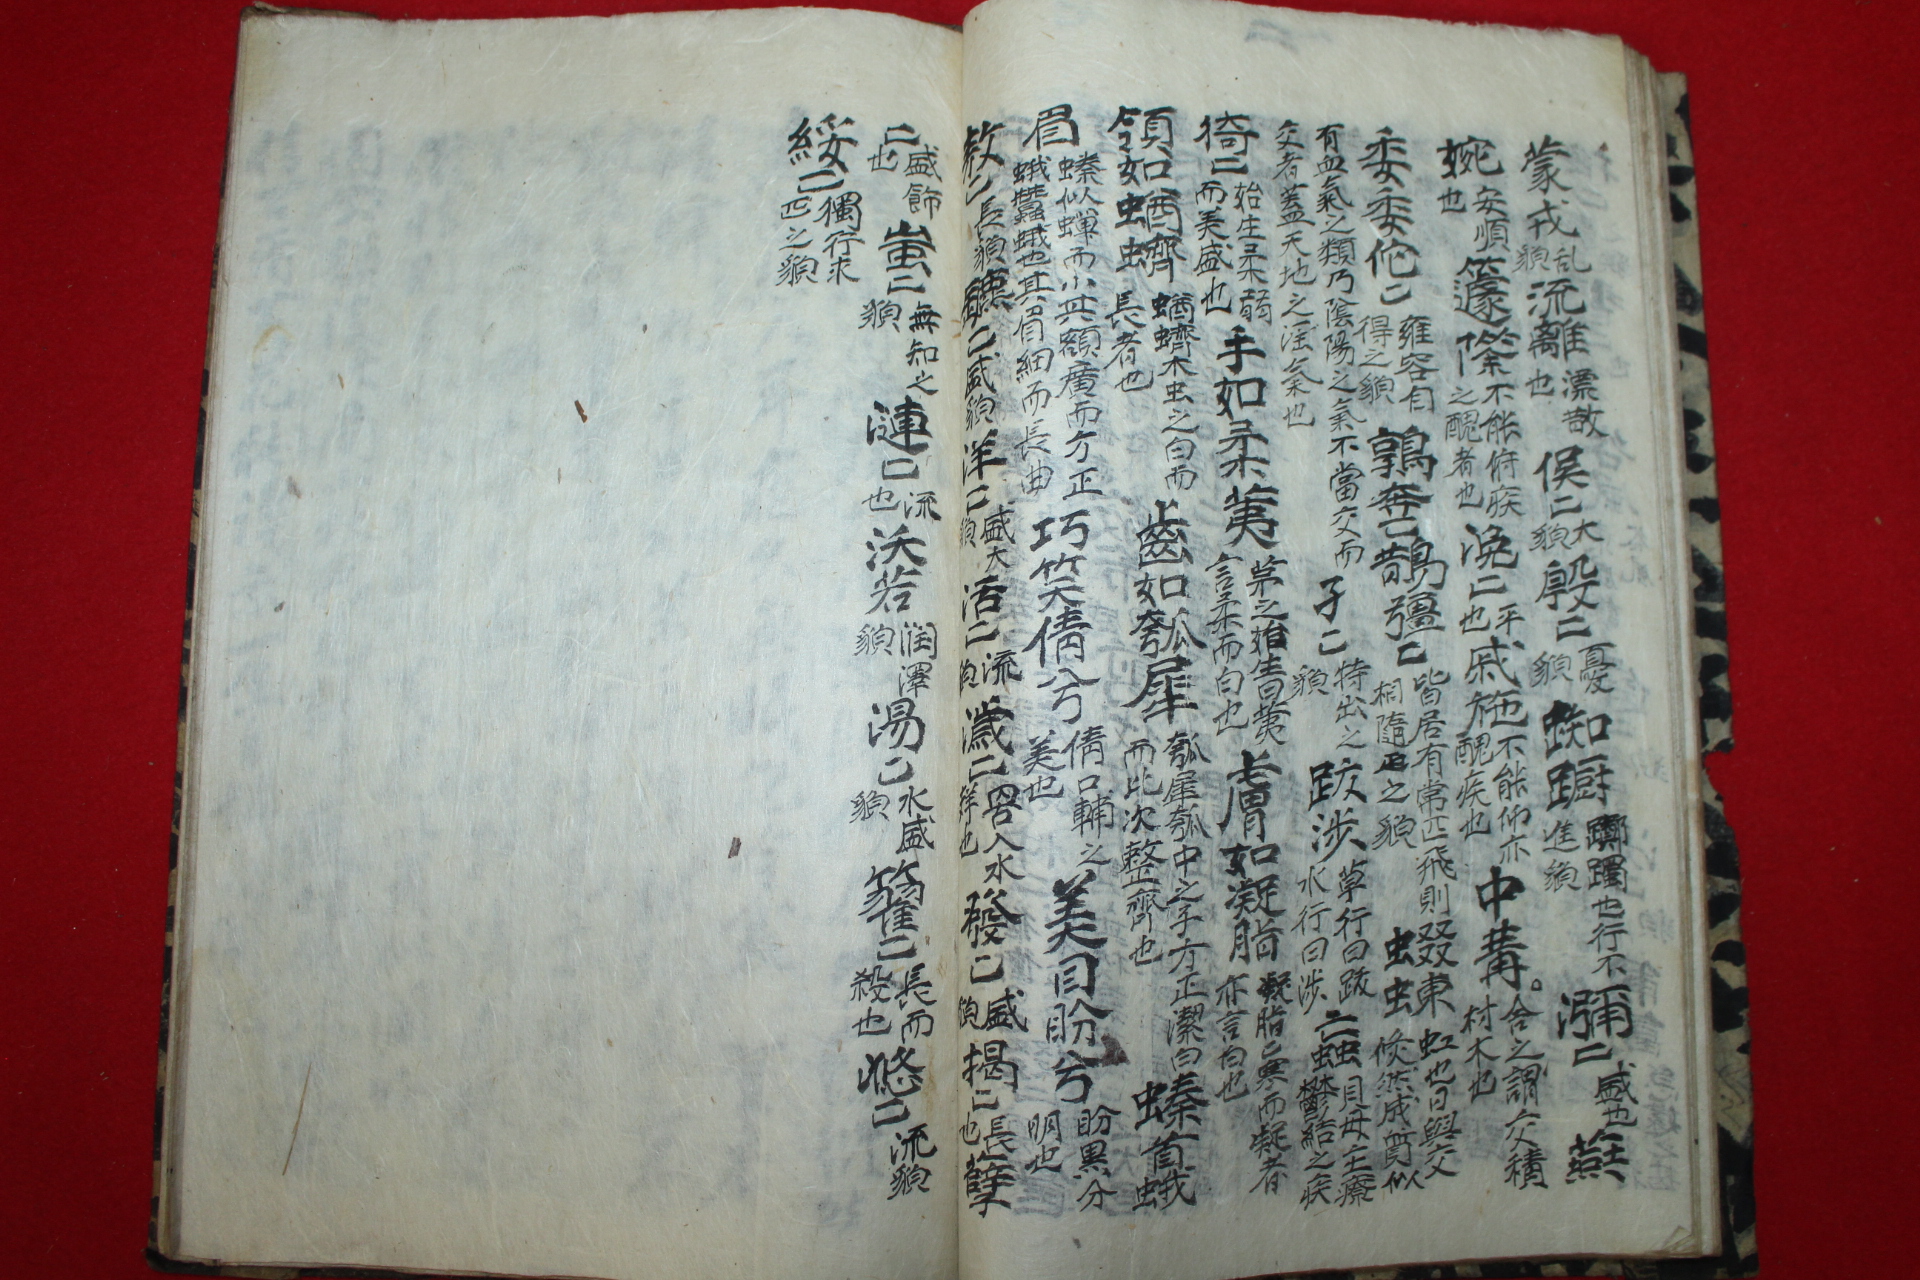 蒙戎乱貌流離漂散也俣二大貌慇二憂貌蜘蹰躑躅也行不進貌瀰二盛也燕
婉安順也籧篨不能俯疾之醜者也浼二平也戚施不能仰亦醜疾也中冓舍之謂交積材木也
委委佗二雍容自得之貌鶉奔二鵲彊二皆居有常匹飛則相隨之貌蝃蝀虹也日與交倏然成質似
有血氣之類乃陰陽之氣不當交而交者蓋天地之淫氣也孑二特出之貌跋涉草行曰跋水行曰涉亡蝱貝母主療鬱結之疾
猗二始生柔弱而美盛也手如柔荑茅之始生曰荑言柔而白也膚如凝脂凝脂寒而凝者亦言白也
領如蝤蠐蝤蠐木虫之白而長者也齒如瓠犀瓠犀瓠中之子方正潔白而比次整齊也螓首蛾
眉螓似蟬而小其額廣而方正蛾蠶蛾也其眉細而長曲巧笑倩兮倩口輔之美也美目盼兮盼黑分明也
敖二長貌鑣二盛貌洋二盛大貌活二流貌濊二罟入水聲也發二盛貌揭二長也孽
二盛飾也蚩二無知之貌漣二流也沃若润澤貌湯二水盛貌籊二長而殺也悠二流貌
綏二獨行求匹之貌